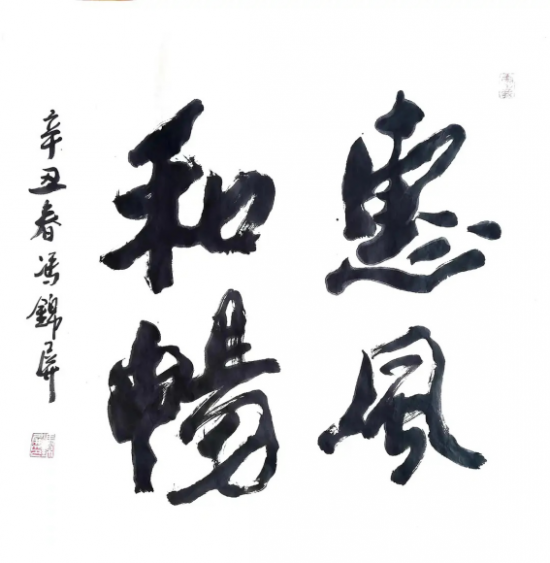 惠风
和暢
辛丑春馮錦屏